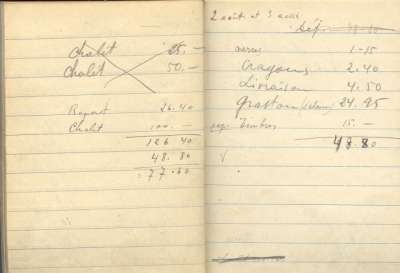 Chalet 25.—
Chalet 50.—
Report 26.40
Chalet 100.—
126 40
48. 80
77.60
2 août et 3 août
Dép.
verres 1-15
Crayons 2.40
Livraison 4.50
24.95
Timbres 15.—
48.80